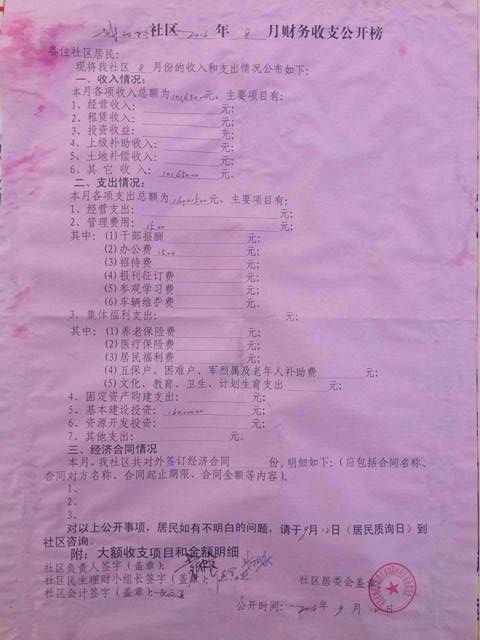 社区2016年8月财务收支公开榜
各位社区居民：
现将我社区8月份的收入和支出情况公布如下：
一、收入情况：
本月各项收入总额为101650.00元，主要项目有：
1、经营收入：元；
2、租赁收入：元；
3、投资收益：元；
4、上级补助收入：元；
5、土地补偿收入：元；
6、其它收入：101650.00元。
二、支出情况：
本月各项支出总额为元，主要项目有：
1、经营支出：元；
2、管理费用：元；
其中：(1)干部报酬元；
(2)办公费元；
(3)招待费元；
(4)报刊征订费元；
(5)参观学习费元；
(6)车辆维护费元；
3、集体福利支出：元；
其中：(1)养老保险费元；
(2)医疗保险费元；
(3)居民福利费元；
(4)五保户、困难户、军烈属及老年人补助费元；
(5)文化、教育、卫生、计划生育支出元；
4、固定资产购建支出：元；
5、基本建设投资：元；
6、资源开发投资：元；
7、其他支出元。
三、经济合同情况
本月，我社区共对外签订经济合同份，明细如下：(应包括合同名称、
合同对方名称、合同起止期限、合同金额等内容)。
1、
2、
3、
对以上公开事项，居民如有不明白的问题，请于9月12日（居民质询日）到
社区咨询。
附：大额收支项目和金额明细
社区负责人签字（盖章）：
社区民主理财小组长签字（盖章）：
社区会计签字（盖章）：
社区居委会盖章
公开时间：2016年9月12日